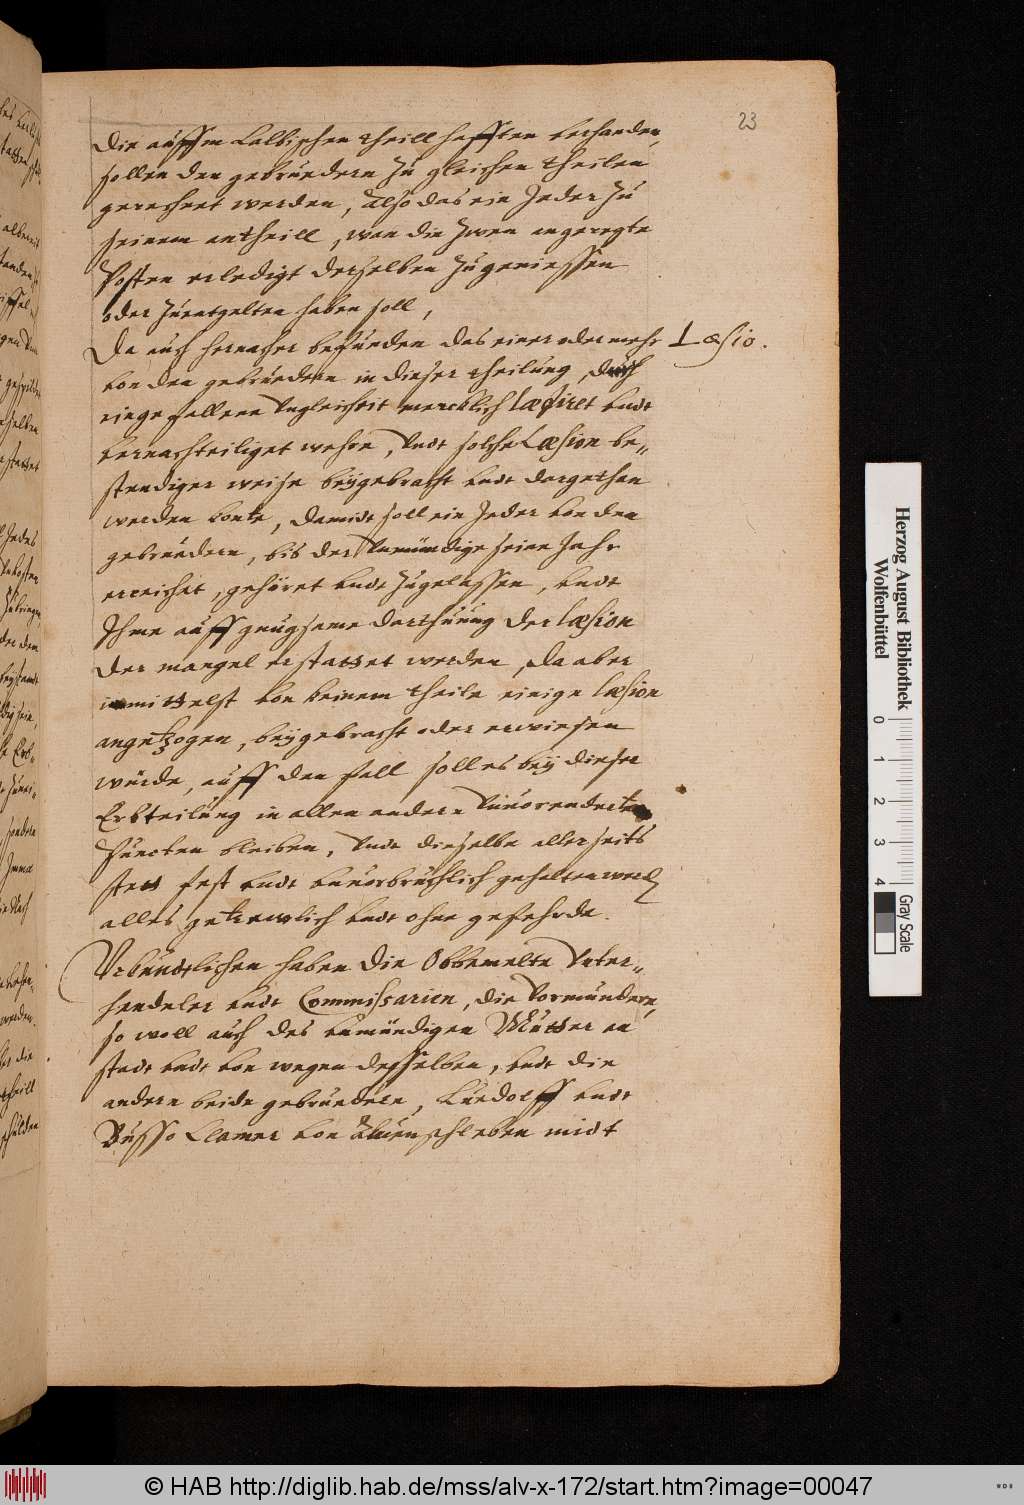 23
Die auffm Calbischen theill hafften verhanden,
sollen den gebruedern zu gleichen theilen
gerechnet werden, Also das ein Jeder zu
seinem antheill, wan die zwen angeregte
Posten erledigt derselben zugeniessen
oder zuentgelten haben soll,
Da auch hernacher befunden das einer oder mehr
Læsio.
von den gebruedern in dieser theilung, durch
eingefallene Ungleicheit mercklich læsiret undt
vernachteiliget wehre, Undt solche Læsion be„
stendiger weise beygebracht undt dargethan
werden konte, damidt soll ein Jeder von den
gebruedern, bis der Unmündige seine Jahr
erreichet, gehöret undt zugelassen, undt
Ihme auff gnugsame darthuung der læsion
der mangel erstattet werden, Da aber
immittelst von keinem theile einige læsion
angetzogen, beygebracht oder erwiesen
würde, auff den fall soll es bey dieser
Erbteilung in allen andern Unuorenderten
Puncten bleiben, Undt dieselbe allerseits
stett fest undt unuorbruchlich gehalten werd
alles getrewlich undt ohne gefehrde.
Uhrkundtlichen haben die Obbemelte Unter„
hendeler undt Commissarien, die Vormündere,
so woll auch des unmündigen Mutter an
stadt undt von wegen desselben, undt die
andern beide gebruedern, Luedolff undt
Busso Clamer von Aluenschleben midt
Herzog August Bibliothek
Wolfenbüttel
0 1 2 3 4
Gray Scale
© HAB http://diglib.hab.de/mss/alv-x-172/start.htm?image=00047